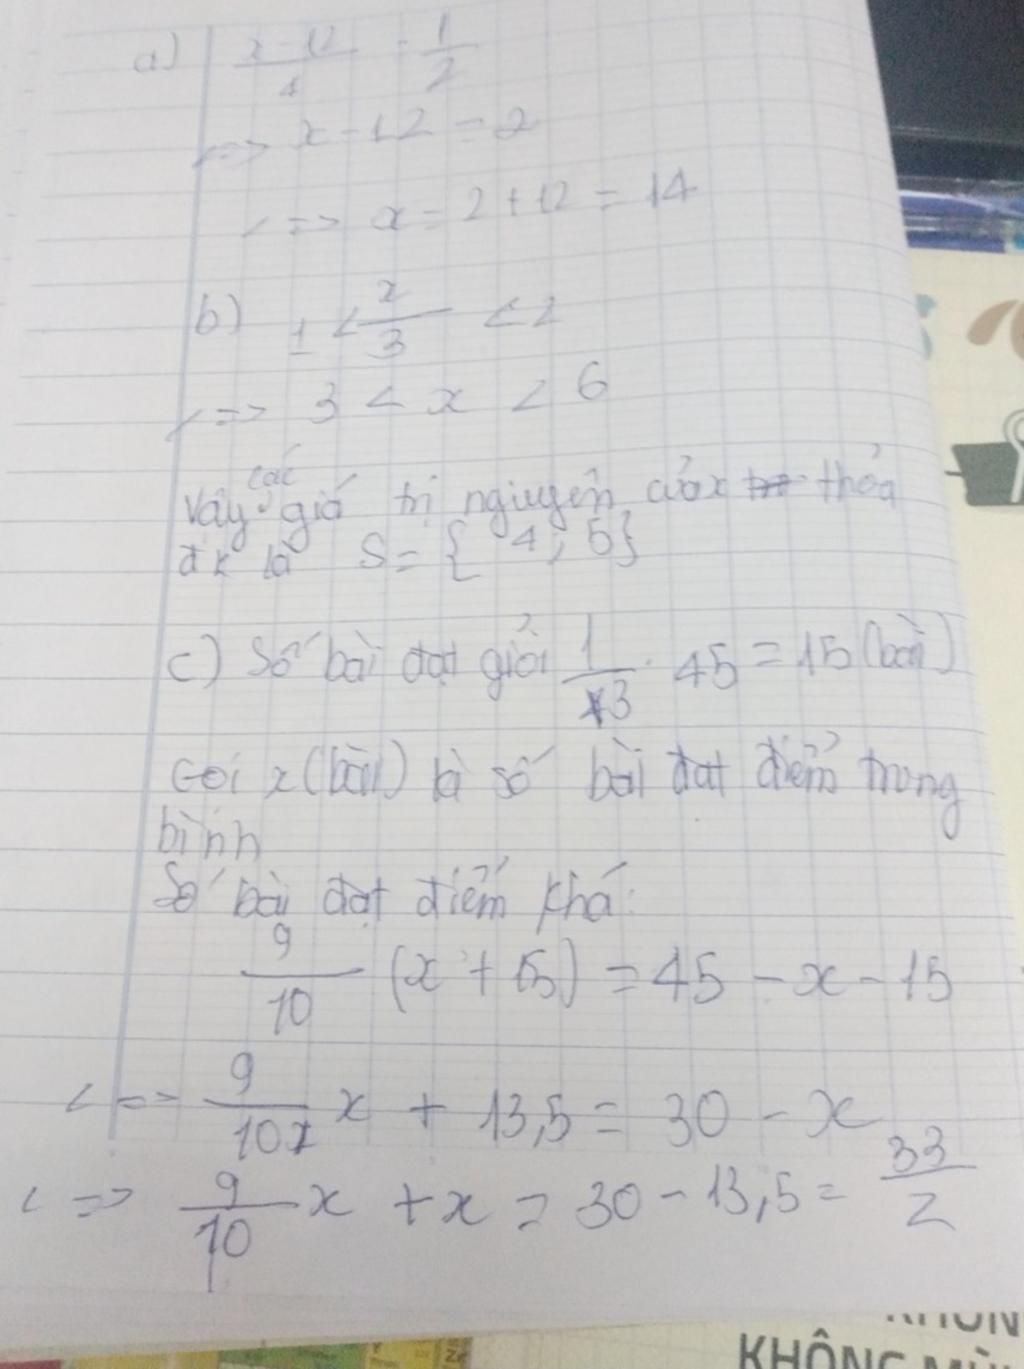 a) (x-12)/4 = 1/2
<=> x-12 = 2
<=> x = 2+12 = 14
b) 1 < x/3 < 2
<=> 3 < x < 6
các
Vậy giá trị nguyên của x thỏa
đk là S = { 4; 5}
c) Số bài đạt giỏi 1/3 . 45 = 15 (bài)
Gọi x (bài) là số bài đạt điểm trung
bình
Số bài đạt điểm khá:
9/10 (x + 15) = 45 - x - 15
<=> 9/10 x + 13,5 = 30 - x
<=> 9/10 x + x = 30 - 13,5 = 33/2